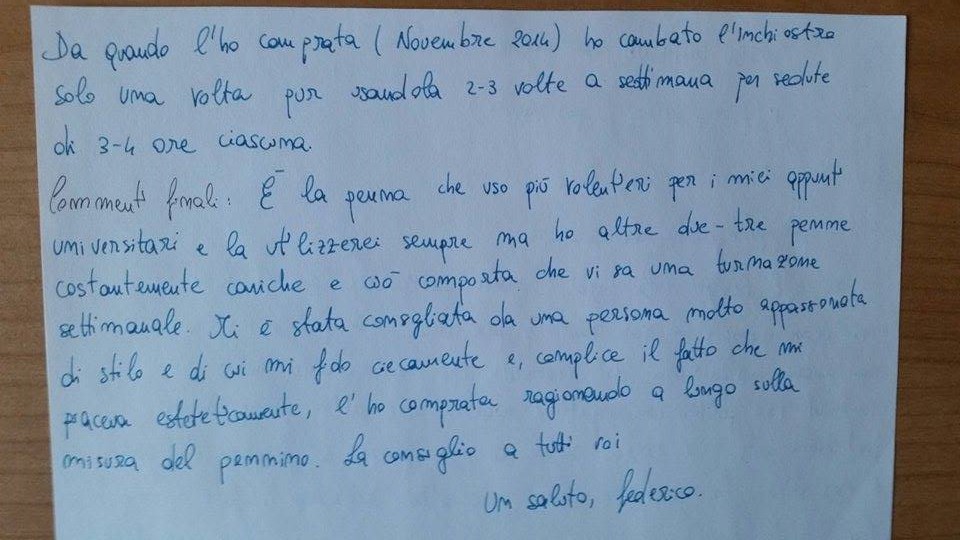 Da quando l'ho comprata (Novembre 2014) ho cambato l'inchiostro
solo una volta pur usandola 2-3 volte a settimana per sedute
di 3-4 ore ciascuna.
Commenti finali: È la penna che uso più volentieri per i miei appunti
universitari e la utilizzerei sempre ma ho altre due-tre penne
costantemente cariche e ciò comporta che vi sia una turnazione
settimanale. Mi è stata consigliata da una persona molto appassionata
di stilo e di cui mi fido ciecamente e, complice il fatto che mi
piaceva esteticamente, l'ho comprata ragionando a lungo sulla
misura del pennino. La consiglio a tutti voi
Un saluto, Federico.